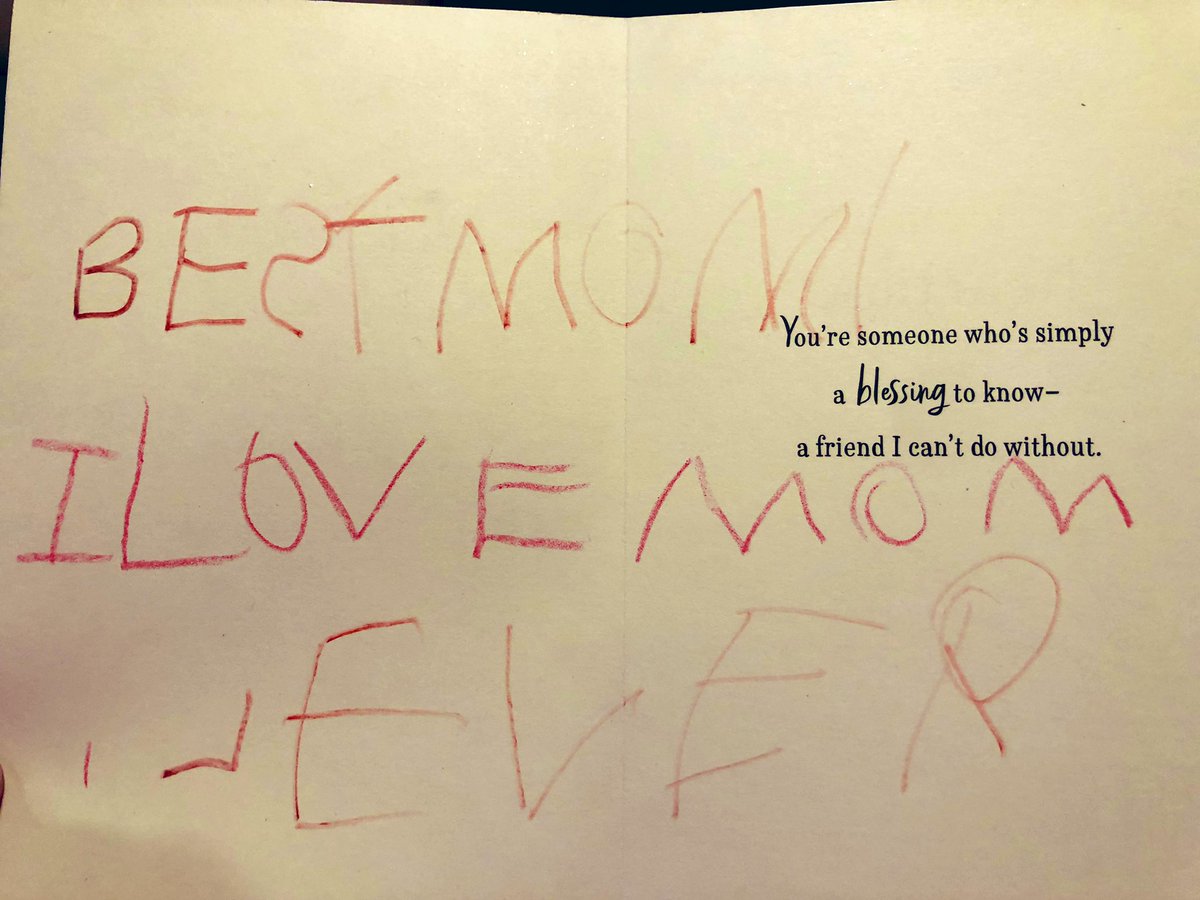 BEST MOM
You're someone who's simply
a blessing to know–
a friend I can't do without.
I LOVE MOM
EVER